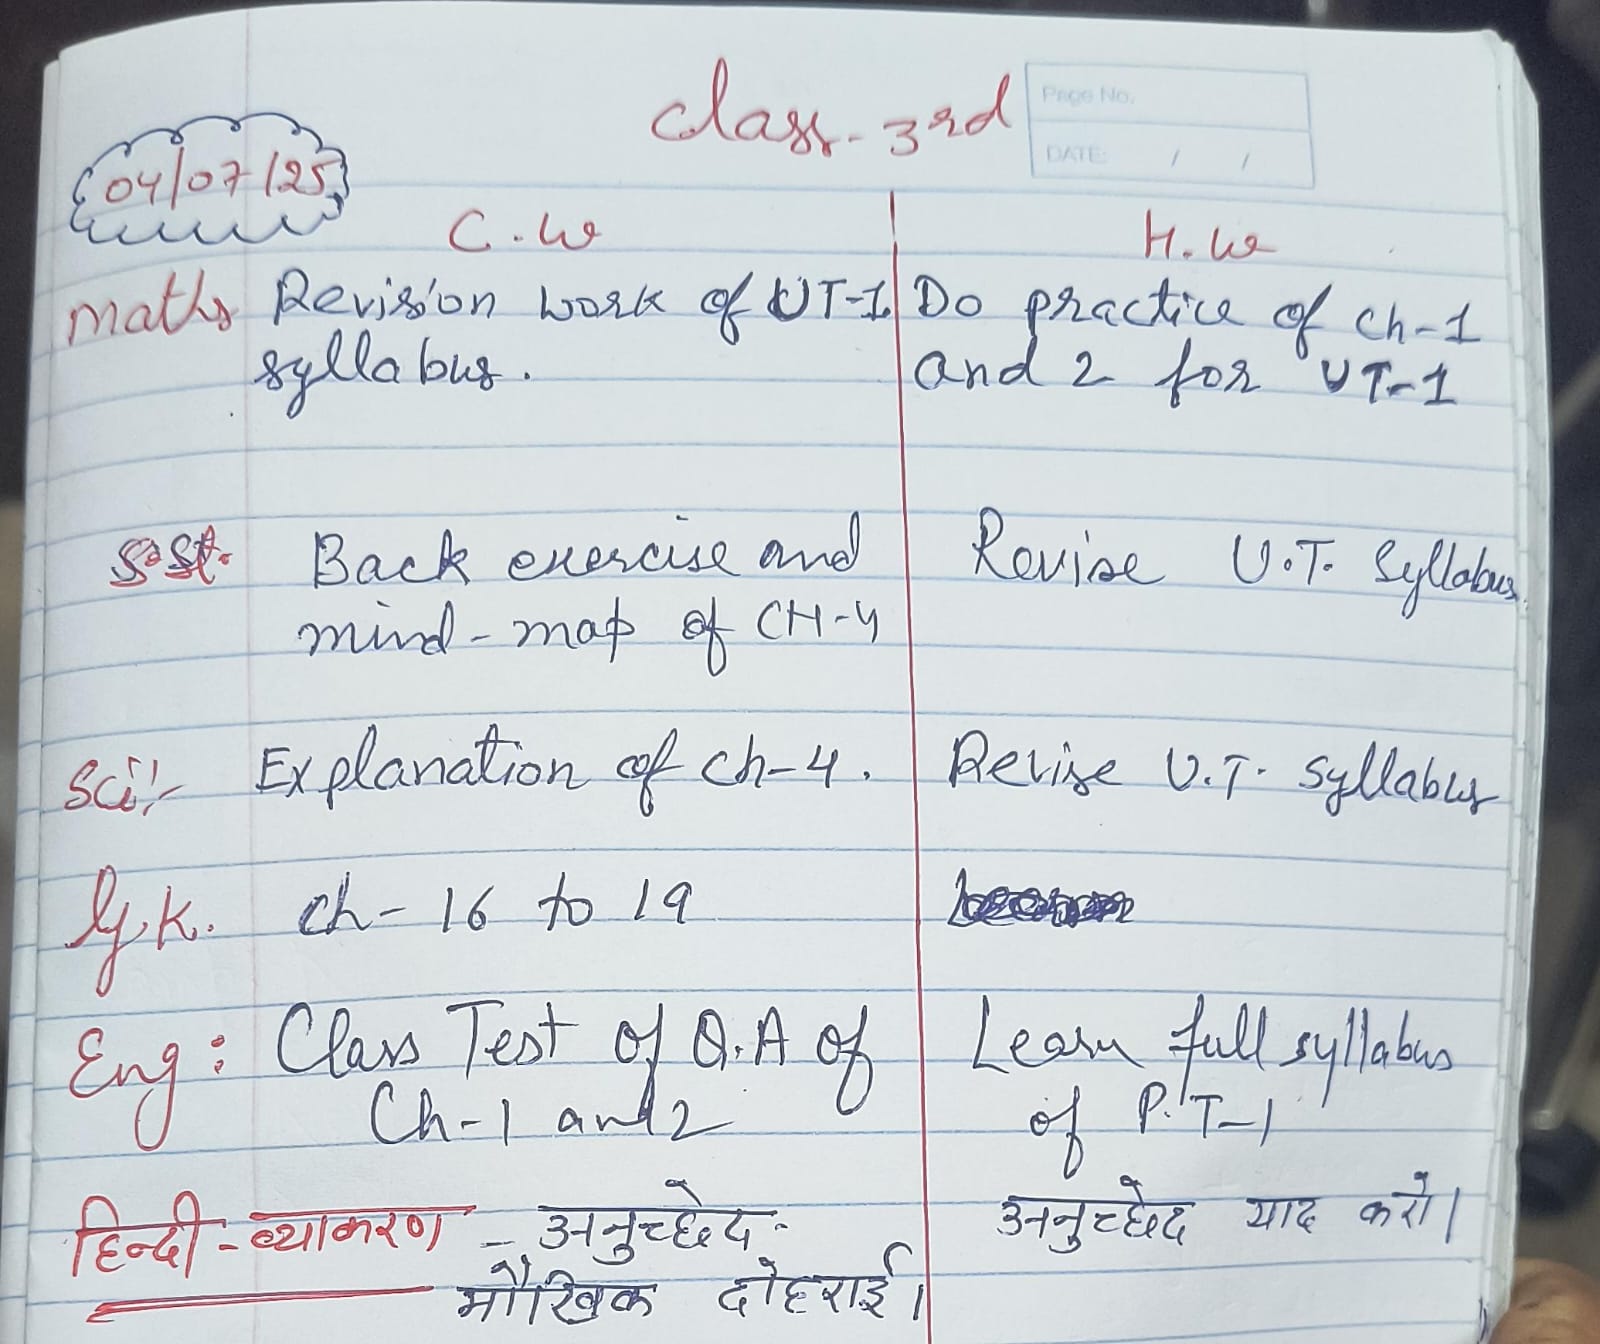 Class- 3rd
Page No.
DATE: / /
04/07/25
C.W
H.W
Maths Revision work of UT-1 Do practice of Ch-1
syllabus. and 2 for UT-1
S.St. Back exercise and Revise U.T. Syllabus.
mind-map of CH-4
Sci:- Explanation of ch-4. Revise U.T. Syllabus
G.K. ch- 16 to 19
Eng: Class Test of Q.A of Learn full syllabus
Ch-1 and 2 of P.T-1
हिन्दी-व्याकरण - अनुच्छेद- अनुच्छेद याद करो।
मौखिक दोहराई।